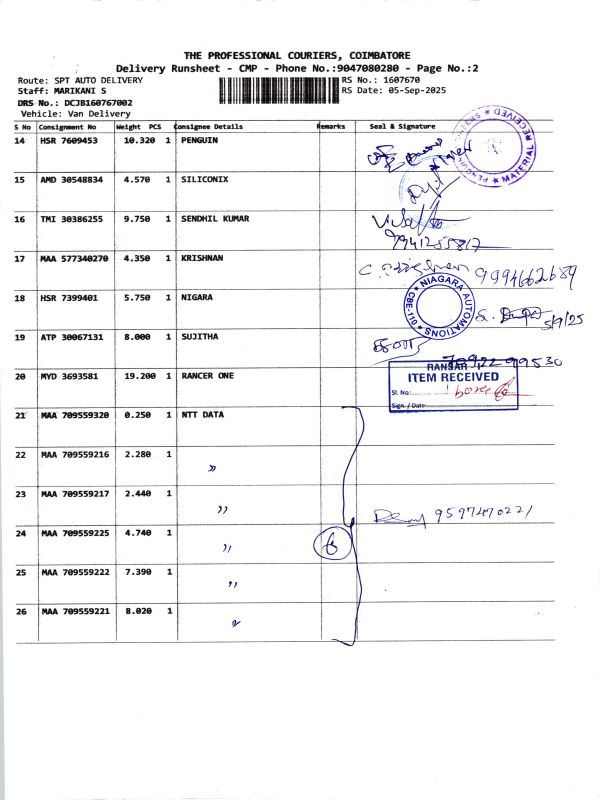 THE PROFESSIONAL COURIERS, COIMBATORE
Delivery Runsheet - CMP - Phone No.:9047080280 - Page No.:2
Route: SPT AUTO DELIVERY RS No.: 1607670
Staff: MARIKANI S RS Date: 05-Sep-2025
DRS No.: DCJB160767002
Vehicle: Van Delivery
S No Consignment No Weight PCS Consignee Details Remarks Seal & Signature
14 HSR 7609453 10.320 1 PENGUIN
MATERIAL RECEIVED
15 AMD 30548834 4.570 1 SILICONIX
16 TMI 30386255 9.750 1 SENDHIL KUMAR
9941255817
17 MAA 577340270 4.350 1 KRISHNAN
9994662689
18 HSR 7399401 5.750 1 NIGARA
NIAGARA AUTOMATIONS CBE-110
5/9/25
19 ATP 30067131 8.000 1 SUJITHA
20 MYD 3693581 19.200 1 RANCER ONE
ITEM RECEIVED
Sl. No:
Sign. / Date
21 MAA 709559320 0.250 1 NTT DATA
22 MAA 709559216 2.280 1 "
23 MAA 709559217 2.440 1 "
9597470221
24 MAA 709559225 4.740 1 " 6
25 MAA 709559222 7.390 1 "
26 MAA 709559221 8.020 1 "